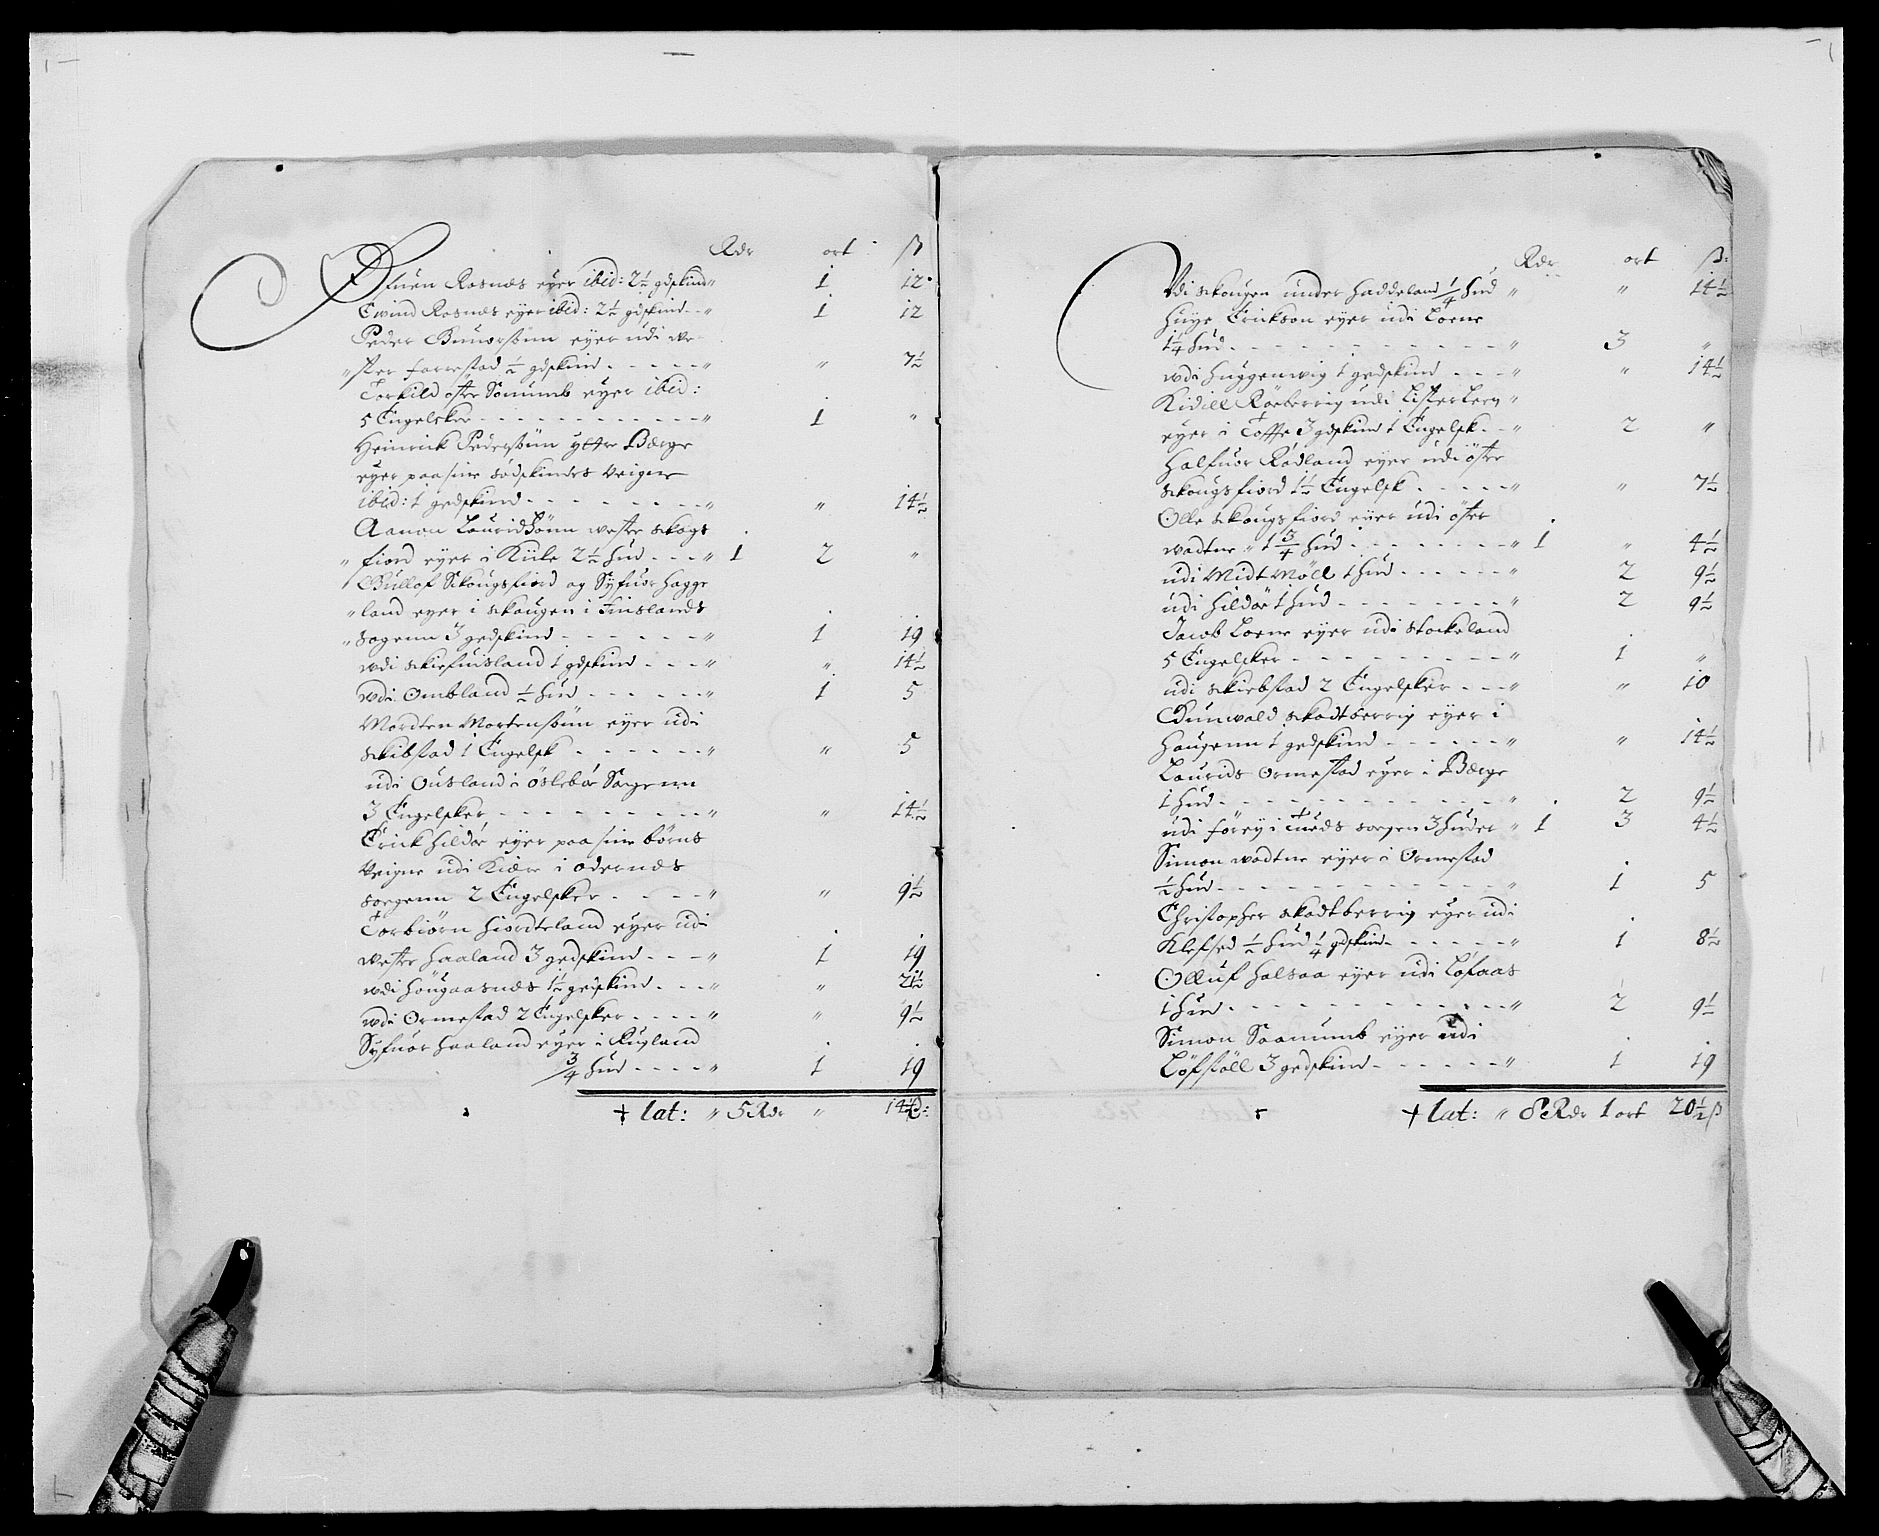 Rdr ort ß
Sfuen Rosnæs eyer ibid: 2½ gdskind " 1 12
Eivind Rosnæs eyer ibid: 2½ gdskind - - " 1 12
Peder Gunorsönn eyer udi we-
" ster Farrestad ½ gdskind - - - - " " 7½
Torkild östre Sonumb eyer ibid:
5 Engelsker - - - - - - " 1 "
Heinrick Pedersönn yttre Berge
eyer paa sine Södskindes veigne
ibid: 1 gedskind - - - - - " " 14½
Aanon Lauridsönn westre Skogs
" fiord eyer i Kiile 2½ hud - - - " 1 2 "
Gullof Skougsfiord og Syfuor Hagge
" land eyer i Skougen i Finslands
" Sogenn 3 gedskind - - - - - " 1 19
wdi Skiefuisland 1 gdskind - - - " " 14½
wdi Ombland ½ hud - - - - - " 1 5
Mordten Mortensönn eyer udi
Skibstad 1 Engelsk - - - - - " " 5
udi Ousland i Öslebör Sogenn
3 Engelsker - - - - - - - " " 14½
Erick Hildör eyer paa sine börns
Veigne udi Kiære i Odernæs
Sogenn 2 Engelsker - - - - " " 9½
Torbiörn Hiordteland eyer udi
westre Haaland 3 gedskind - - - " 1 19
wdi Höugaasnæs 1½ gedskind - - - " " 21½
wdi Ormestad 2 Engelsker - - - - " " 9½
Syfuor Haaland eyer i Rugland
¾ hud - - - - " 1 19
lat: " 5 Rdr " 14½ ß:
Rdr ort ß:
Vdi Skougen under Haddeland ¼ hud " " 14½
Huye Erickson eyer udi Loene
1¼ hud - - - - - - - - " 3 "
wdi Huggenwig 1 gedskind - - - " " 14½
Kidill Röeberrig udi Listerleen "
eyer i Toffte 3 gdskind 1 Engelsk - - " 2 "
Halfuor Rödland eyer udi östre
Skougsfiord 1½ Engelsk - - - - " " 7½
Olle Skougsfiord eyer udi öster
wadtne " 1¾ hud - - - - - - " 1 " 4½
udi Midt Möll 1 hud - - - - - " 2 9½
udi Hildör 1 hud - - - - - - " 2 9½
Jacob Loene eyer udi Stockeland
5 Engelsker - - - - - - - " 1 "
udi Skiebstad 2 Engelsker - - - " " 10
Gunwald Skodtberrig eyer i
Haugenn 1 gedskind - - - - - " " 14½
Laurids Ormestad eyer i Berge
1 hud - - - - - - - - - " 2 9½
udi Förey i Sogen 3 huder " 1 3 4½
Simon wadtne eyer i Ormestad
½ hud - - - - - - - - - " 1 5
Christopher Skodtberrig eyer udi
Klefsed ½ hud ¼ gdskind - - - - - " 1 8½
Olluf Halsaa eyer udi Löfaas
1 hud - - - - - - - - - " 2 9½
Simon Saanumb eyer udi
Löfstöll 3 gedskind - - - - - " 1 19
lat: " 8 Rdr 1 ort 20½ ß